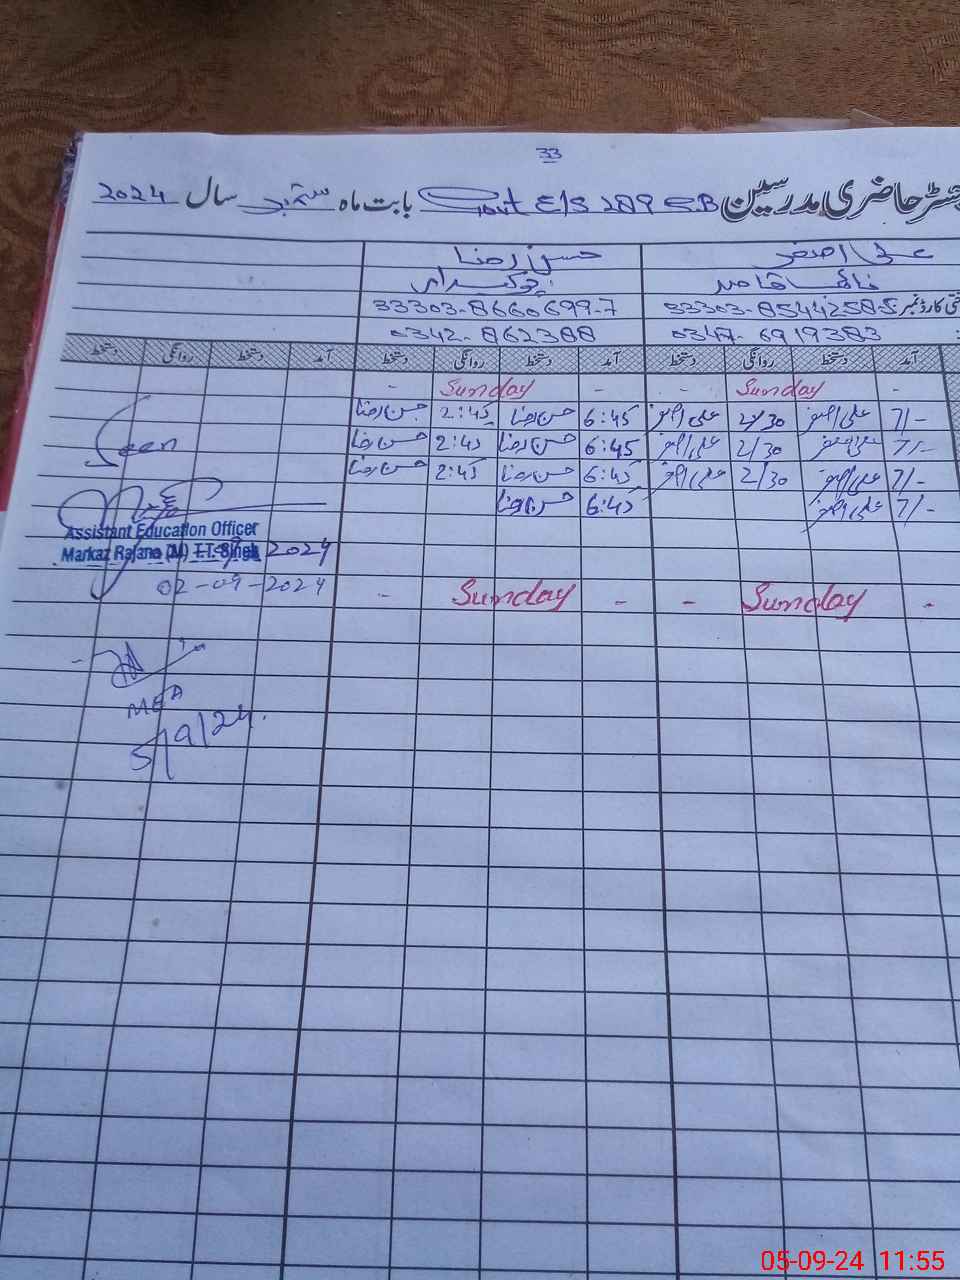 33
رجسٹر حاضری مدرسین Govt E/S 289 G.B بابت ماہ ستمبر سال 2024
علی اصغر حسن رضا
نائب قاصد چوکیدار
شناختی کارڈ نمبر 33303-8544258-5 33303-8660699-7
0347-6919383 0342-862388
آمد دستخط روانگی دستخط آمد دستخط روانگی دستخط آمد دستخط روانگی دستخط
- Sunday - - Sunday
7/- علی اصغر 2/30 علی اصغر 6:45 حسن رضا 2:45 حسن رضا
7/- علی اصغر 2/30 علی اصغر 6:45 حسن رضا 2:45 حسن رضا
7/- علی اصغر 2/30 علی اصغر 6:45 حسن رضا 2:45 حسن رضا
7/- علی اصغر 6:45 حسن رضا
Seen
Assistant Education Officer
Markaz Rajana (M) T.T. Singh 2024
02-09-2024
- Sunday - - Sunday -
MEA
5/9/24.
05-09-24 11:55